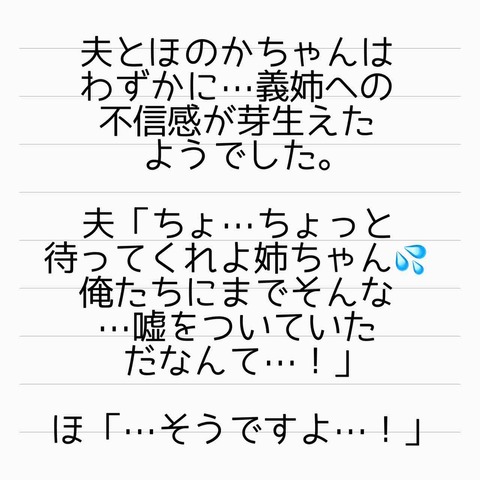 夫とほのかちゃんは
わずかに…義姉への
不信感が芽生えた
ようでした。
夫「ちょ…ちょっと
待ってくれよ姉ちゃん💦
俺たちにまでそんな
…嘘をついていた
だなんて…！」
ほ「…そうですよ…！」